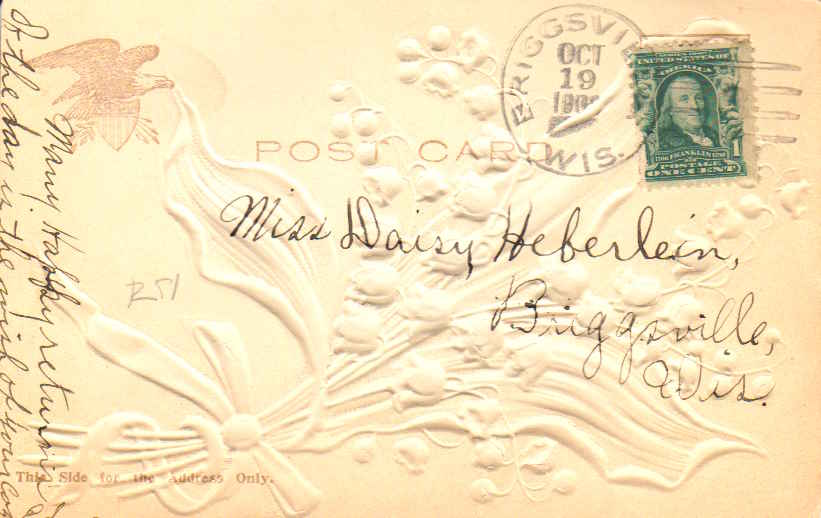 BRIGGSVIL
OCT
19
WIS.
UNITED STATES OF
AMERICA
1
FRANKLIN
POSTAGE
ONE CENT
POST CARD
Miss Daisy Heberlein,
Briggsville,
Wis.
R51
Many Happy returns
of the day is the wish of your
This Side for the Address Only.